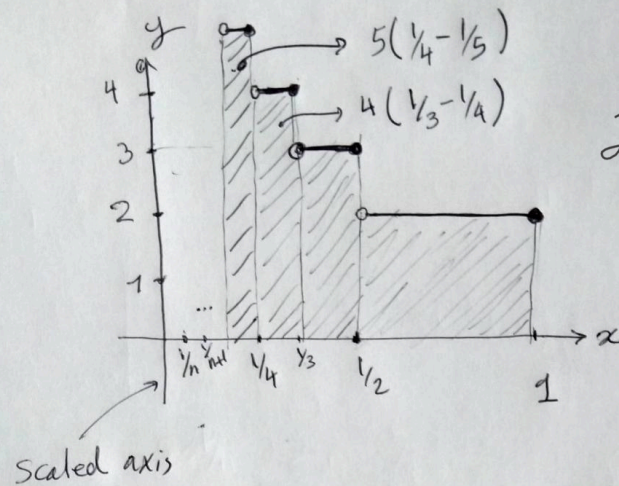 y
5(1/4-1/5)
4
4(1/3-1/4)
3
2
1
...
1/n 1/n+1 1/4 1/3 1/2 1 x
Scaled axis